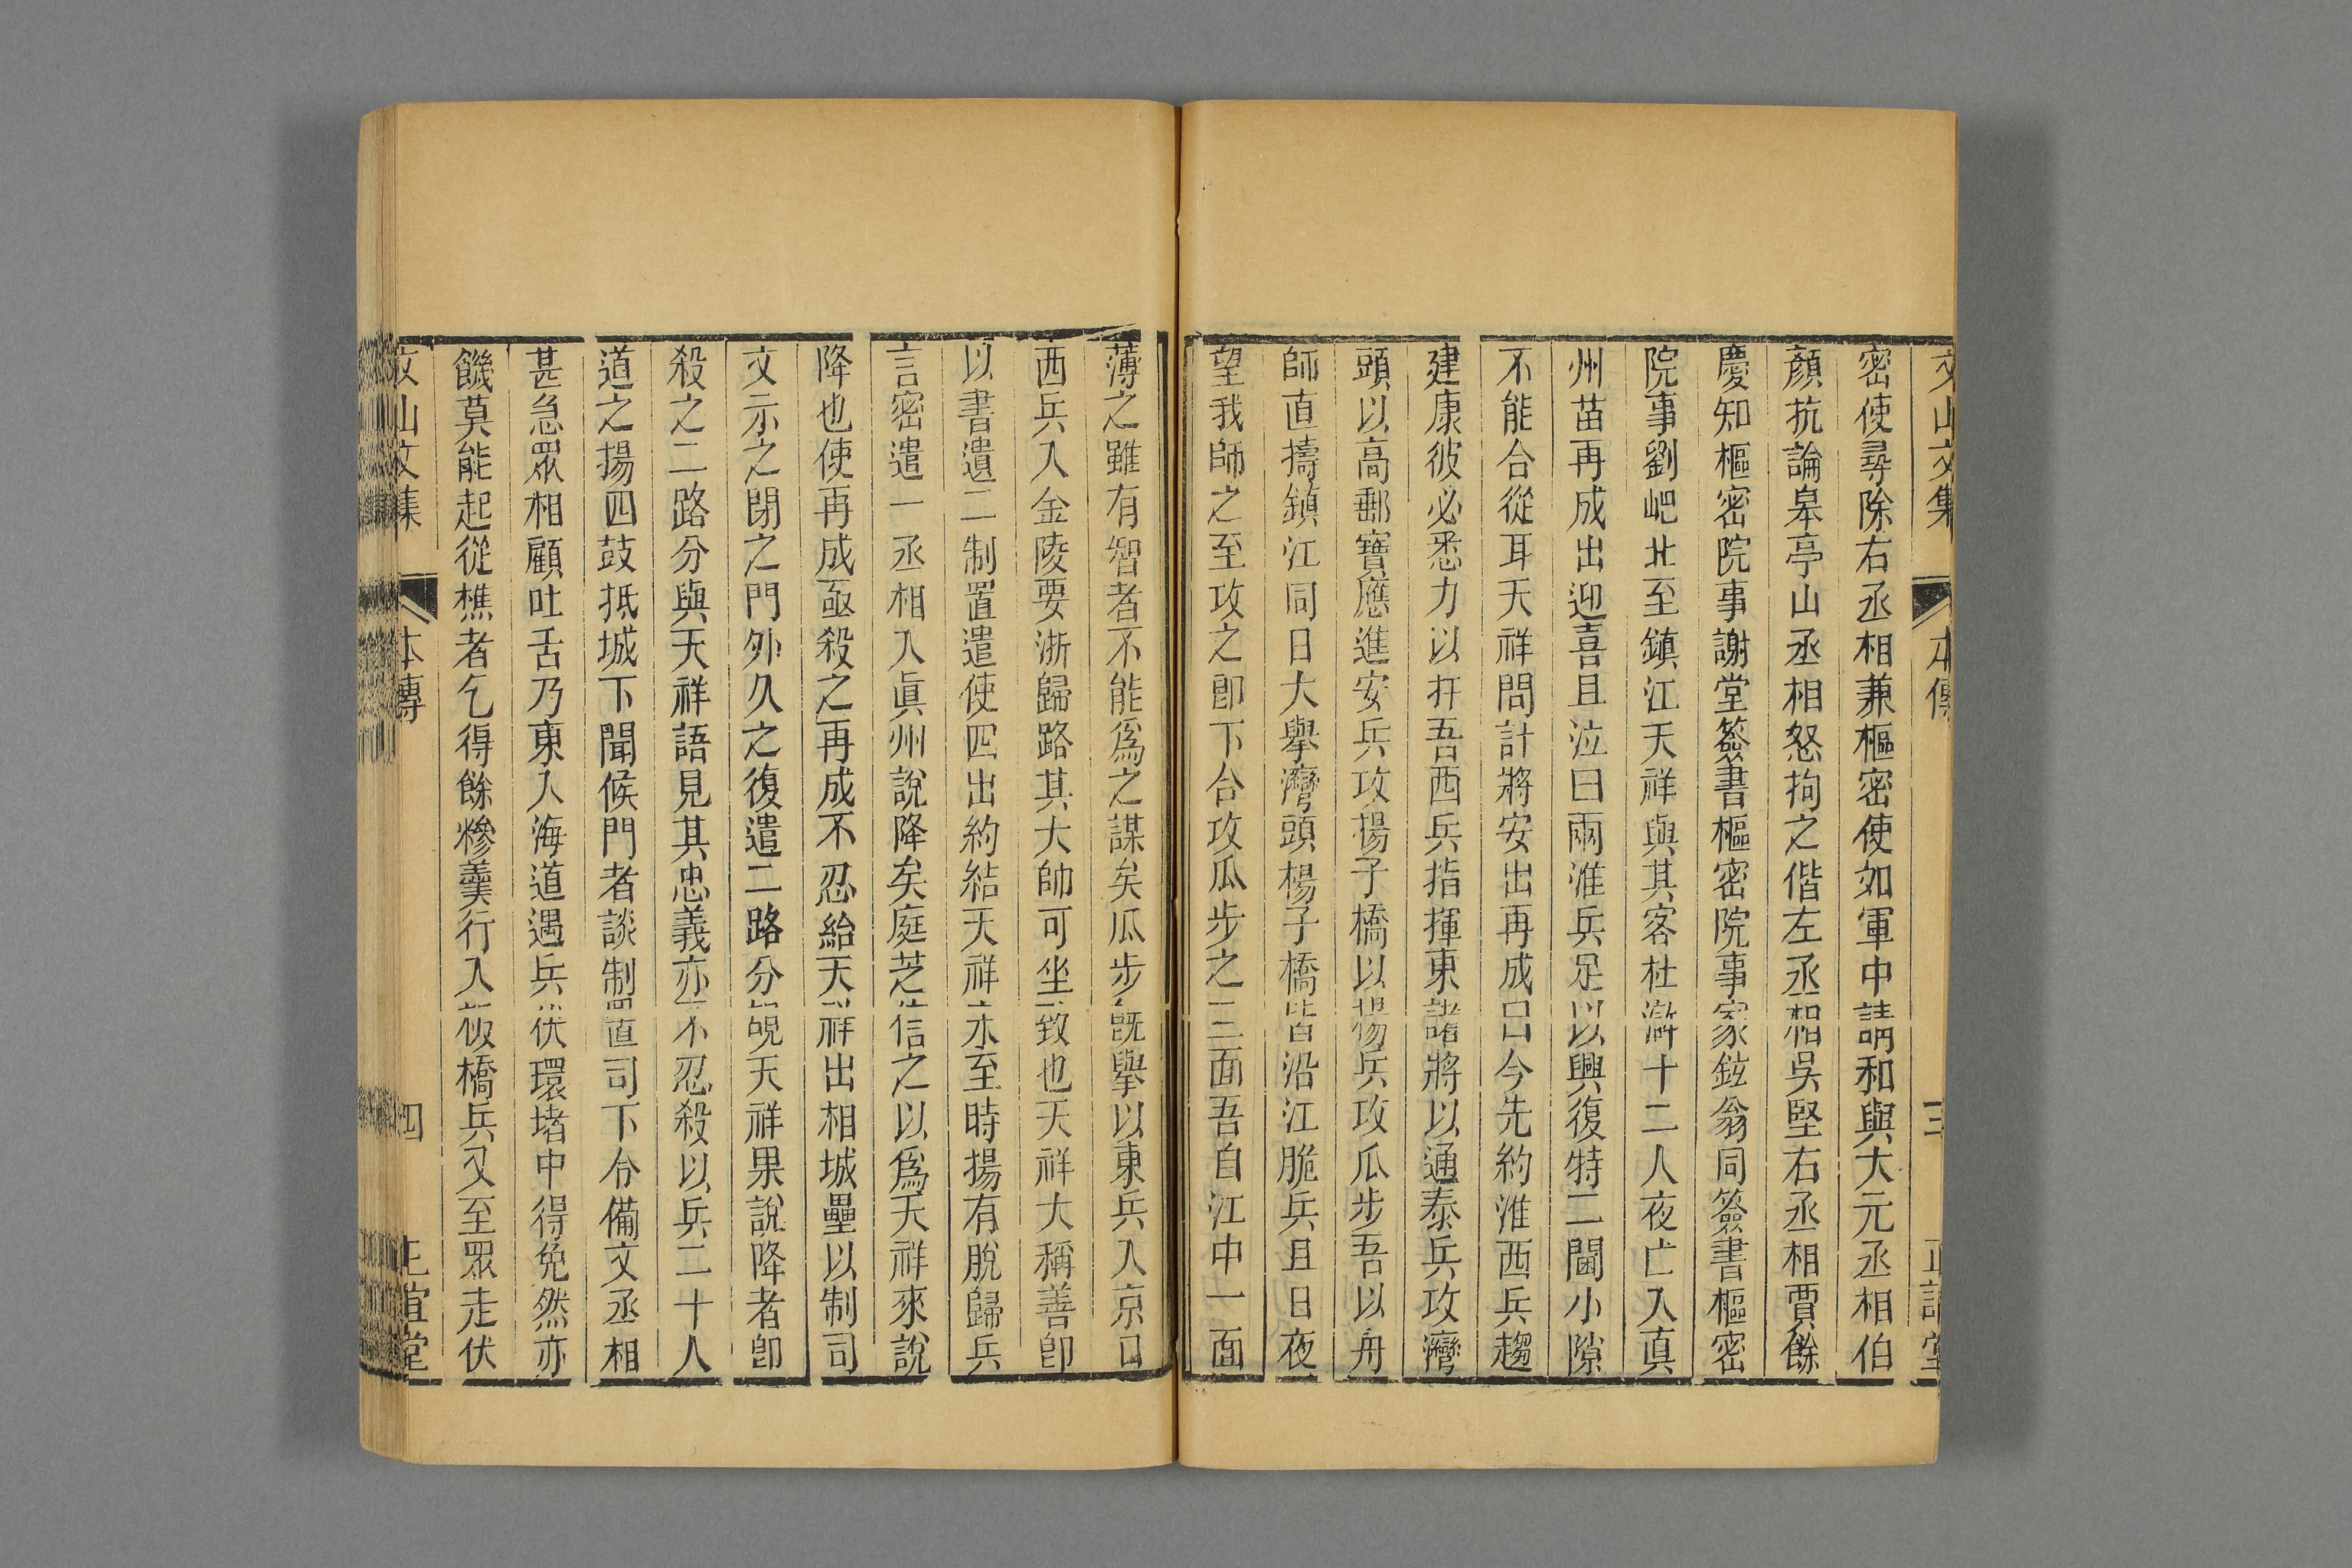 文山文集 本傳 三 正誼堂
密使尋除右丞相兼樞密使如軍中請和與大元丞相伯
顏抗論皋亭山丞相怒拘之偕左丞相吳堅右丞相賈餘
慶知樞密院事謝堂簽書樞密院事家鉉翁同簽書樞密
院事劉岊北至鎮江天祥與其客杜滸十二人夜亡入真
州苗再成出迎喜且泣曰兩淮兵足以興復特二閫小隙
不能合從耳天祥問計將安出再成曰今先約淮西兵趨
建康彼必悉力以扞吾西兵指揮東諸將以通泰兵攻灣
頭以高郵寶應淮安兵攻揚子橋以揚兵攻瓜步吾以舟
師直擣鎮江同日大舉灣頭楊子橋皆沿江脆兵且日夜
望我師之至攻之即下合攻瓜步之三面吾自江中一面
薄之雖有智者不能爲之謀矣瓜步旣舉以東兵入京口
西兵入金陵要浙歸路其大帥可坐致也天祥大稱善卽
以書遺二制置遣使四出約結天祥未至時揚有脫歸兵
言密遣一丞相入眞州說降矣庭芝信之以爲天祥來說
降也使再成亟殺之再成不忍紿天祥出相城壘以制司
文示之閉之門外久之復遣二路分覘天祥果說降者卽
殺之二路分與天祥語見其忠義亦不忍殺以兵二十人
道之揚四鼓抵城下聞候門者談制置司下令備文丞相
甚急眾相顧吐舌乃東入海道遇兵伏環堵中得免然亦
饑莫能起從樵者乞得餘糝羹行入板橋兵又至眾走伏
文山文集 本傳 四 正誼堂